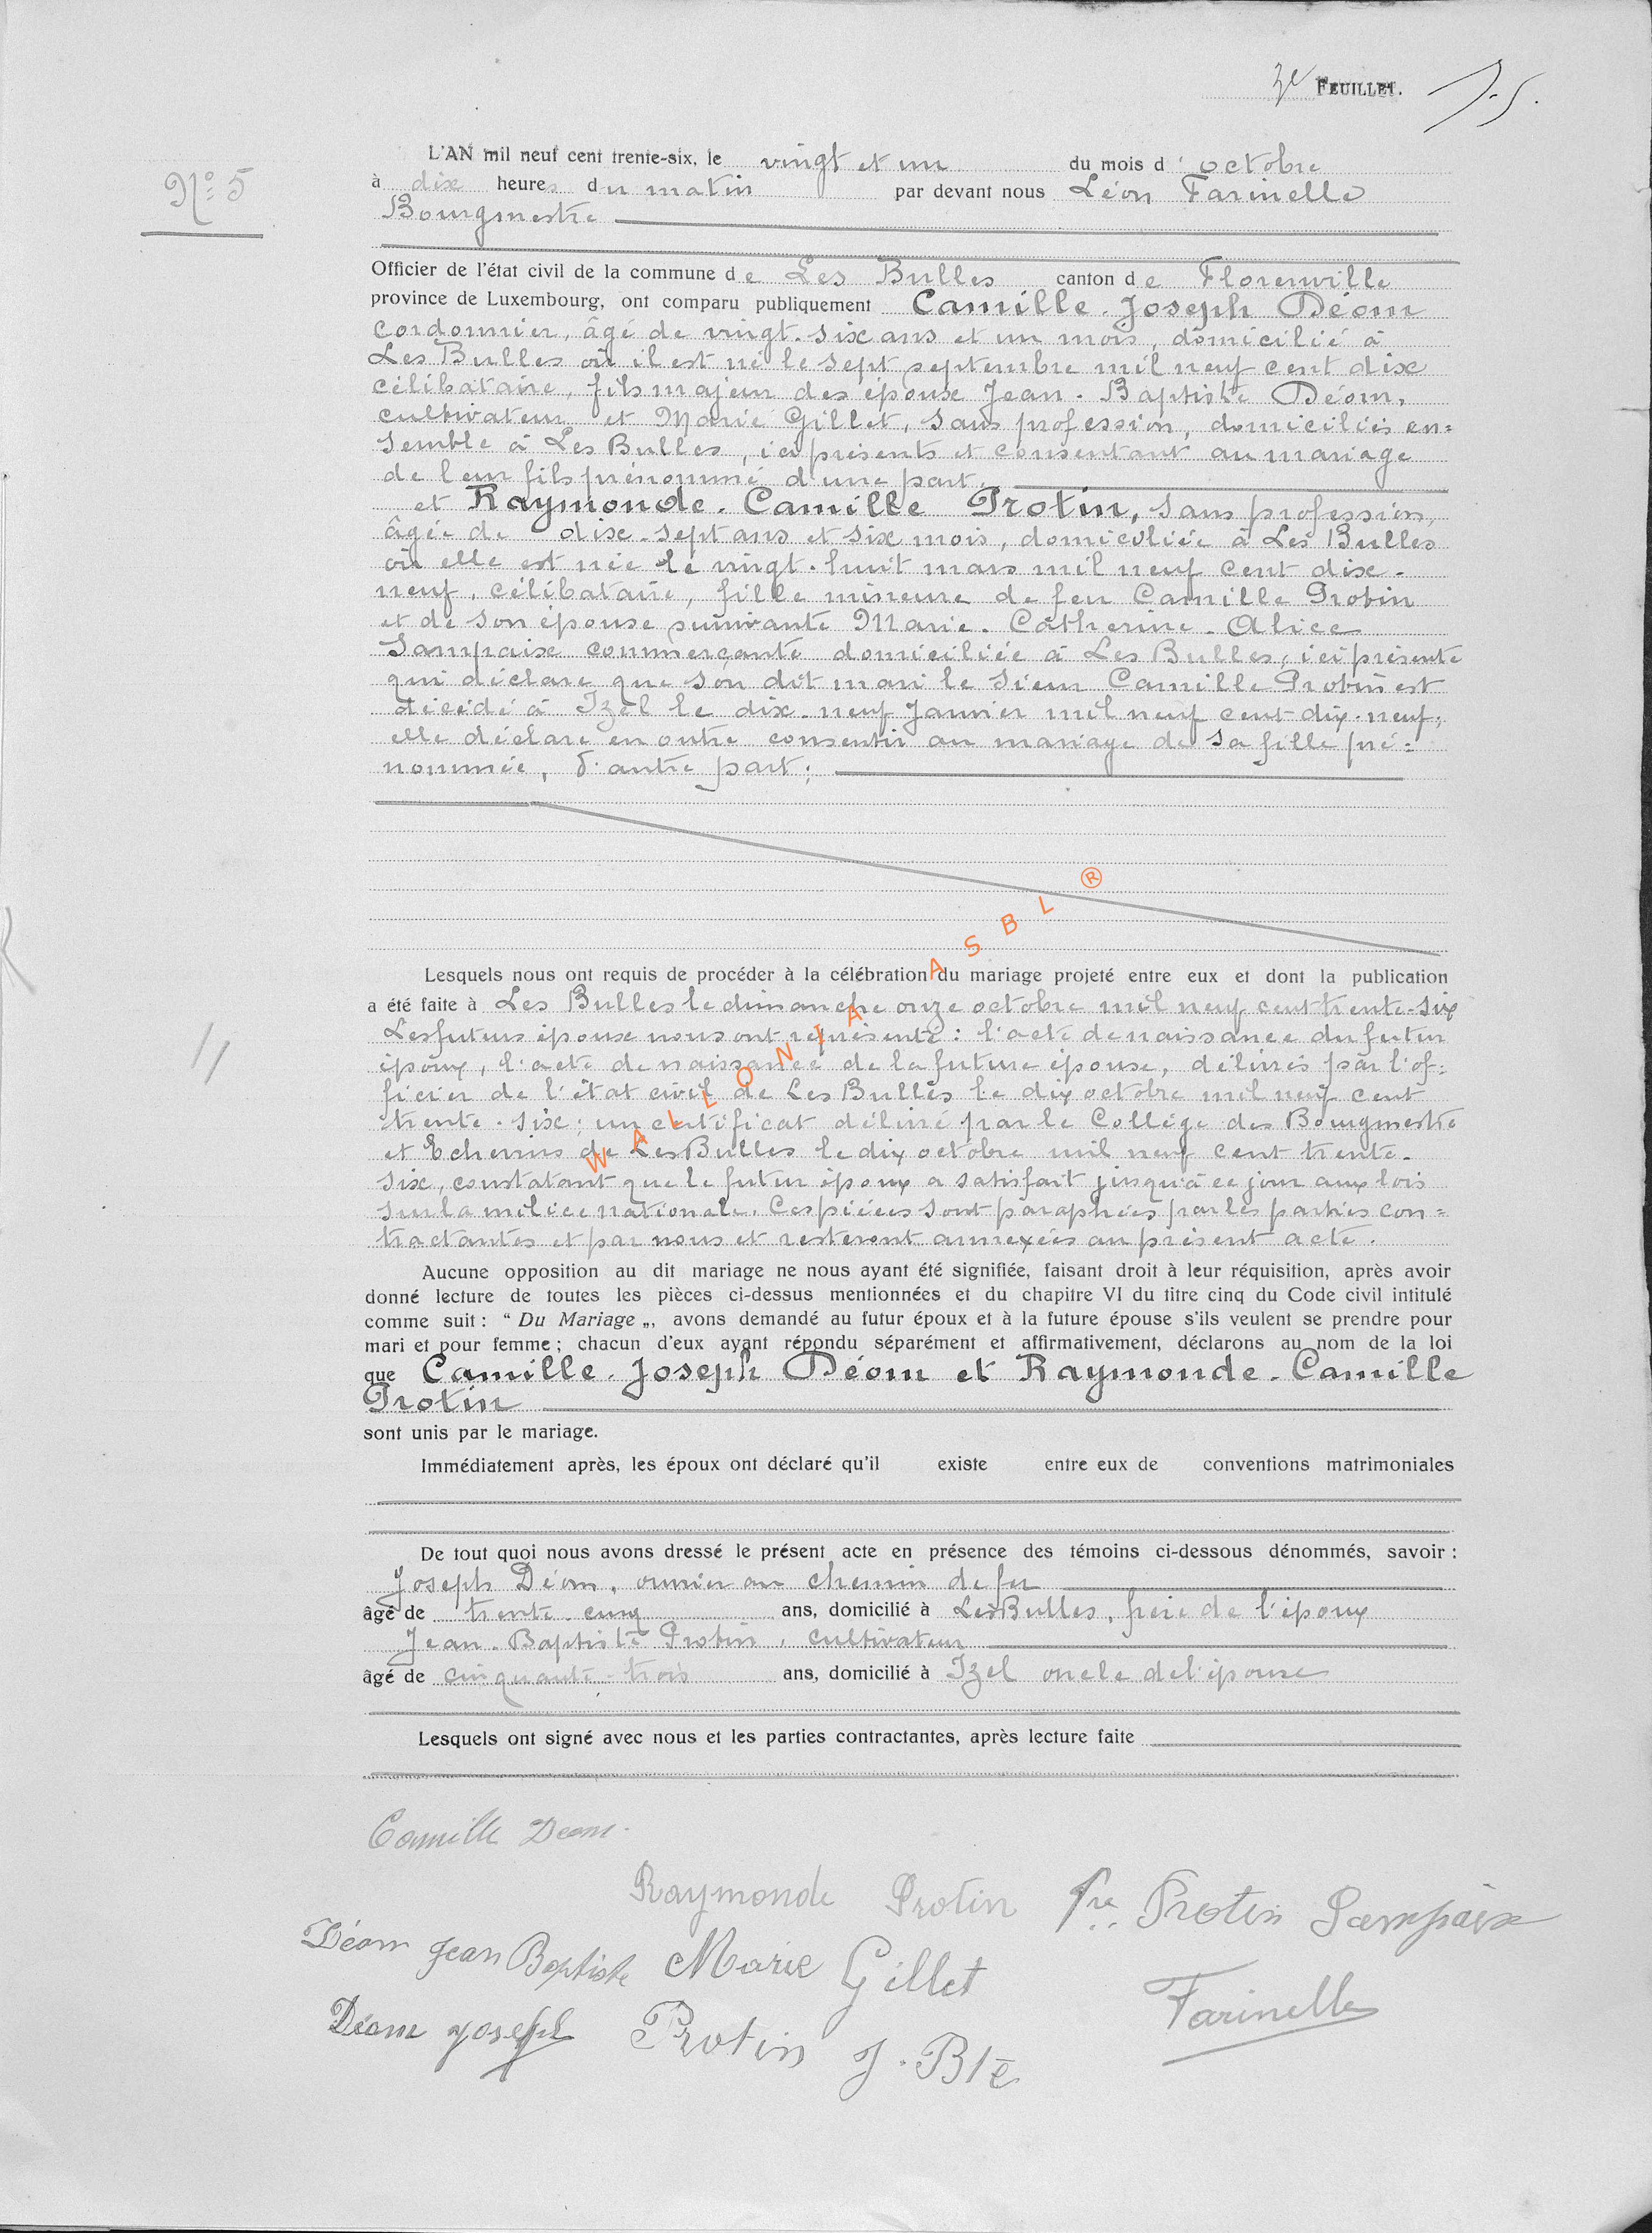 3e FEUILLET.
No 5
L'AN mil neuf cent trente-six, le vingt et un du mois d'octobre
à dix heures du matin par devant nous Léon Farinelle
Bourgmestre
Officier de l'état civil de la commune de Les Bulles canton de Florenville
province de Luxembourg, ont comparu publiquement Camille-Joseph Déom
cordonnier, âgé de vingt-six ans et un mois, domicilié à
Les Bulles où il est né le sept septembre mil neuf cent dix
célibataire, fils majeur des époux Jean-Baptiste Déom,
cultivateur et Marie Gillet, sans profession, domiciliés en=
semble à Les Bulles, ici présents et consentant au mariage
de leur fils prénommé d'une part.
et Raymonde-Camille Protin, sans profession,
âgée de dix-sept ans et six mois, domiciliée à Les Bulles
où elle est née le vingt-huit mars mil neuf cent dix-
neuf, célibataire, fille mineure de feu Camille Protin
et de son épouse survivante Marie-Catherine-Alice
Sampaix commerçante domiciliée à Les Bulles, ici présente
qui déclare que son dit mari le sieur Camille Protin est
décédé à Izel le dix-neuf Janvier mil neuf cent dix-neuf;
elle déclare en outre consentir au mariage de sa fille pré=
nommée, d'autre part;
Lesquels nous ont requis de procéder à la célébration du mariage projeté entre eux et dont la publication
a été faite à Les Bulles le dimanche onze octobre mil neuf cent trente-six
Les futurs époux nous ont représenté: l'acte de naissance du futur
époux, l'acte de naissance de la future épouse, délivrés par l'of=
ficier de l'état civil de Les Bulles le dix octobre mil neuf cent
trente-six; un certificat délivré par le Collège des Bourgmestre
et Echevins de Les Bulles le dix octobre mil neuf cent trente-
six, constatant que le futur époux a satisfait jusqu'à ce jour aux lois
sur la milice nationale. Ces pièces sont paraphées par les parties con=
tractantes et par nous et resteront annexées au présent acte.
Aucune opposition au dit mariage ne nous ayant été signifiée, faisant droit à leur réquisition, après avoir
donné lecture de toutes les pièces ci-dessus mentionnées et du chapitre VI du titre cinq du Code civil intitulé
comme suit : " Du Mariage „, avons demandé au futur époux et à la future épouse s'ils veulent se prendre pour
mari et pour femme ; chacun d'eux ayant répondu séparément et affirmativement, déclarons au nom de la loi
que Camille-Joseph Déom et Raymonde-Camille
Protin
sont unis par le mariage.
Immédiatement après, les époux ont déclaré qu'il existe entre eux de conventions matrimoniales
De tout quoi nous avons dressé le présent acte en présence des témoins ci-dessous dénommés, savoir :
Joseph Déom, ouvrier au chemin de fer
âgé de trente-cinq ans, domicilié à Les Bulles, frère de l'époux
Jean-Baptiste Protin, cultivateur
âgé de cinquante-trois ans, domicilié à Izel oncle de l'épouse
Lesquels ont signé avec nous et les parties contractantes, après lecture faite
Camille Deom.
Raymonde Protin Vve Protin Sampaix
Déom Jean Baptiste Marie Gillet
Farinelle
Déom Joseph Protin J. Bte
WALLONIA ASBL ®